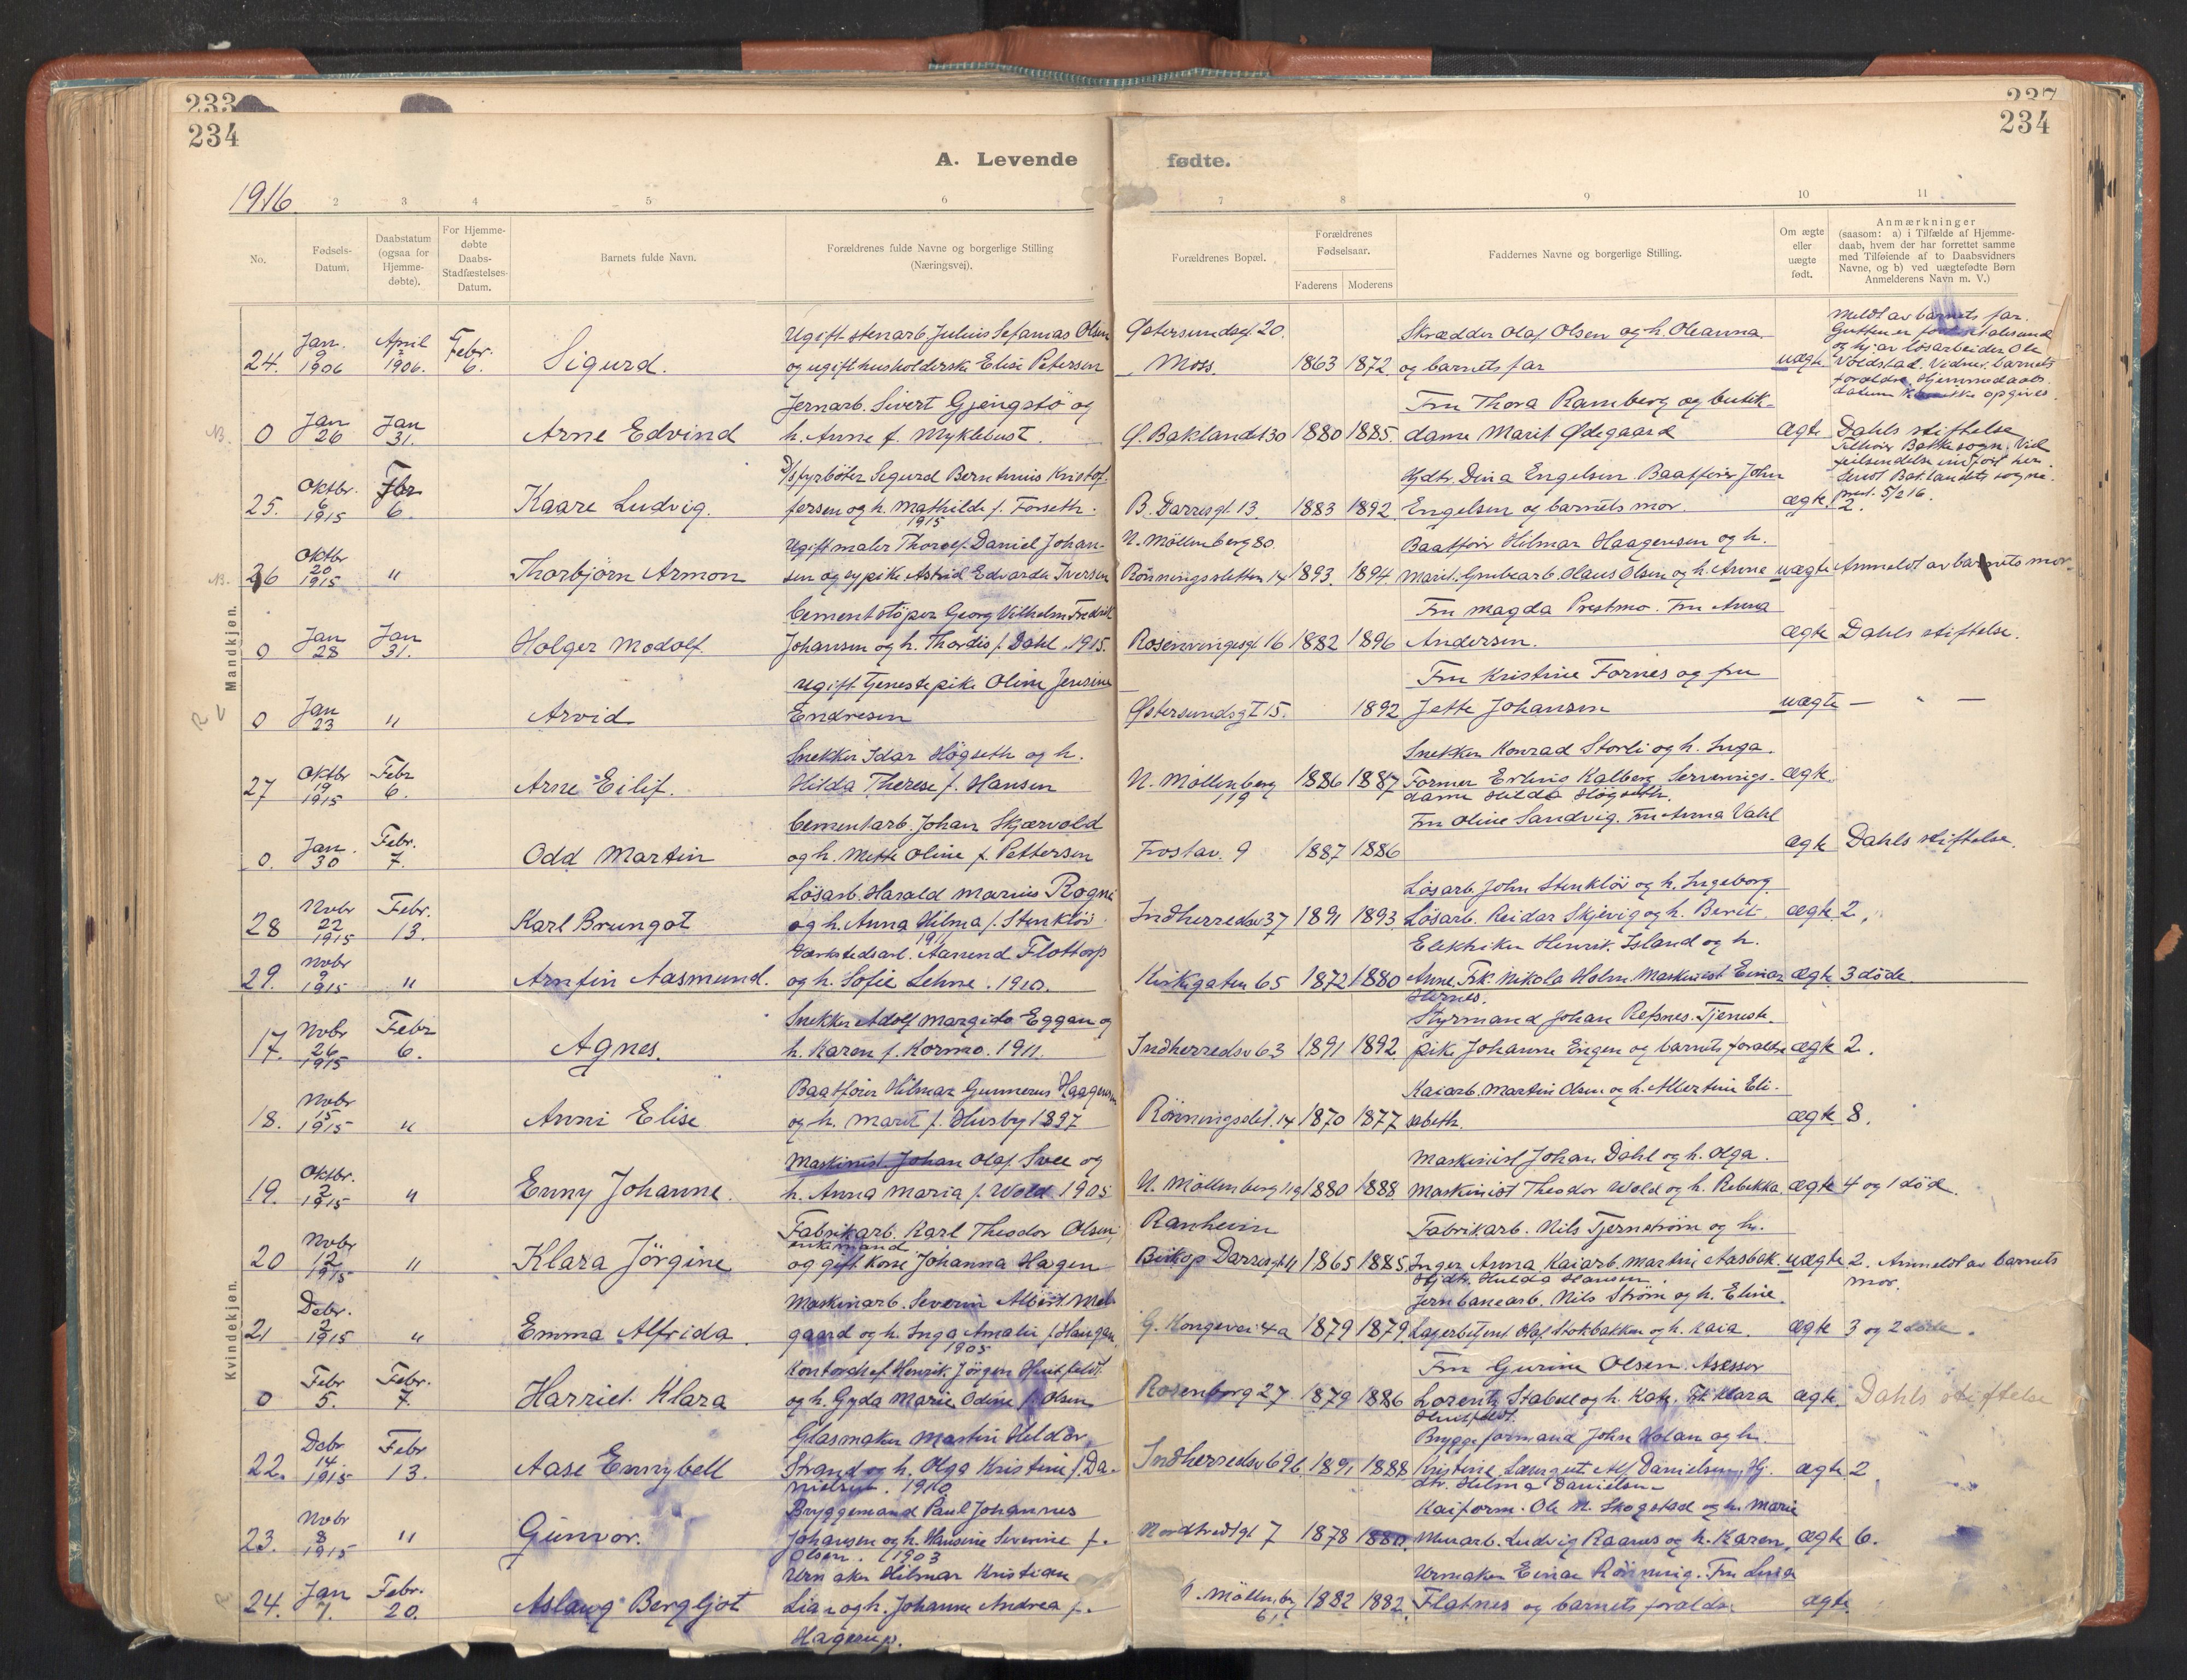 233
237
234
234
A. Levende fødte.
1916.
2 3 4 5 6 7 8 9 10 11
No.
Fødsels-Datum.
Daabsdatum (ogsaa for Hjemme-døbte).
For Hjemme-døbte Daabs-Stadfæstelses-Datum.
Barnets fulde Navn.
Forældrenes fulde Navne og borgerlige Stilling (Næringsvej).
Forældrenes Bopæl.
Forældrenes Fødselsaar.
Faderens
Moderens
Faddernes Navne og borgerlige Stilling.
Om ægte eller uægte født.
Anmærkninger
(saasom: a) i Tilfælde af Hjemme-
daab, hvem der har forrettet samme
med Tilføiende af to Daabsvidners
Navne, og b) ved uægtefødte Børn
Anmelderens Navn m. V.)
Mandkjøn.
24. Jan. 9 1906 April 1906. Febr. 6. Sigurd.
Ugift stenarb. Julius Sefanias Olsen
og ugift husholderske Elise Petersen
Østersundsgt 20.
Moss. 1863 1872.
Skrædder Olaf Olsen og h. Oleanna
og barnets far
uægte
Meldt av barnets far.
og hj. av løsarbeider Ole
Voldstad. Vidner. barnets
forældre. Hjemmedaabs
datum kan ikke opgives.
NB.
0 Jan 26 Jan 31. Arne Edvind
Jernarb. Sivert Gjengstö og
h. Anne f. Myklebust.
Ø. Baklandet 30 1880 1885.
Fru Thora Ramberg og butik-
dame Marit Ødegaard
ægte Dahls stiftelse
Tilhører Bakke sogn. Ved
feilsendelse indført her.
Sendt Baklandets sogne-
prest. 5/2 16.
25. Oktbr. 6 1915 Febr 6. Kaare Ludvig.
D/S fyrbøter Sigurd Bernthinius Kristof-
fersen og h. Mathilde f. Forseth.
1915
B. Darresgt. 13. 1883 1892.
Hjdtr. Dina Engelsen. Baatfører John
Engelsen og barnets mor.
ægte. 2.
NB.
26 Oktbr 20 1915 " Thorbjörn Armon
Ugift maler Thorolf Daniel Johan-
sen og sypike Astrid Edvarda Iversen
N. Möllenberg 80.
Rönningsletten 14 1893. 1894
Baatfører Hilmar Haagensen og h.
Marit. Grubearb. Olaus Olsen og h. Anna
uægte Anmeldt av barnets mor.
0 Jan 28 Jan 31. Holger Modolf.
Cementstöper Georg Vilhelm Fredrik
Johansen og h. Thordis f. Dahl. 1915.
Rosenvingesgt 16 1882 1896
Fru Magda Prestmo. Fru Anna
Andersen.
ægte Dahls stiftelse.
0 Jan 23 " Arvid
Ugift tjenestepike Oline Jensine
Endresen
Østersundsgt 15. 1892
Fru Kristine Fornes og fru
Jette Johansen
uægte — " —
27 Oktbr 19 1915 Febr 6. Arne Eilif.
Snekker Idar Högseth og h.
Hilda Therese f. Hansen
N. Möllenberg 119 1886 1887
Snekker Konrad Storli og h. Inga.
Former Erling Kalberg. Serverings-
dame Hilda Högseth.
ægte.
0. Jan. 30 Febr. 7. Odd Martin
Cementarb. Johan Skjærvold
og h. Mette Oline f. Pettersen
Frostav. 9 1887 1886
Fru Oline Sandvig. Fru Anna Vahl
ægte Dahls stiftelse.
28 Novbr 22 1915 Febr. 13. Karl Brungot
Lösarb. Harald Marius Rogne
og h. Anna Hilma f. Stenklöv
Indherredsv 37 1891 1893.
Lösarb. John Stenklöv og h. Ingeborg.
Lösarb. Reidar Skjevig og h. Berit.
ægte 2.
29. Novbr 9 1915 " Arnfin Aasmund.
Værkstedsarb. Aanund Flottorp
og h. Sofie Lehne. 1910.
Kirkegaten 65 1872 1880
Elektriker Henrik Island og h.
Anne. Frk. Nikola Holm. Maskinist Einar
Hernes.
ægte 3 døde.
Kvindekjøn.
17. Novbr 26 1915 Febr 6. Agnes.
Snekker Adolf Margido Eggan og
h. Karen f. Kormo. 1911.
Indherredsv 63 1891 1892
Styrmand Johan Refsnes. Tjeneste-
pike Johanne Engen og barnets forældre
ægte 2.
18. Novbr 15 1915 " Anni Elise
Baatfører Hilmar Gunnerus Haagensen
og h. Marit f. Husby 1897
Rönningslet. 14 1870 1877
Kaiarb. Martin Olsen og h. Albertine Eli-
sabeth.
ægte 8.
19. Oktbr. 2 1915 " Enny Johanne.
Maskinist Johan Olaf Svee og
h. Anna Maria f. Wold 1905
N. Möllenberg 119 1880 1888
Maskinist Johan Dahl og h. Olga.
Maskinist Theodor Wold og h. Rebekka.
ægte 4 og 1 död.
20 Novbr 12 1915 " Klara Jörgine
Fabrikarb. Karl Theodor Olsen,
enkemand
og gift kone Johanna Hagen
Ranheim
Biskop Darresgt 11 1865 1885
Fabrikarb. Nils Tjernström og h.
Inger Anna Kaiarb. Martin Aasbak.
Hjdtr. Hulda Hansen.
uægte 2. Anmeldt av barnets
mor.
21 Debr. 2 1915 " Emma Alfrida.
Maskinarb. Severin Albert Mel-
gaard og h. Inga Amalie f. Haugan.
1905
G. Kongevei 4a 1879 1879.
Jernbanearb. Nils Ström og h. Eline.
Lagerbetjent Olaf Stokbakken og h. Kaia.
ægte 3 og 2 döde.
0 Febr 5. Febr. 7. Harriet Klara
Kontorchef Henrik Jörgen Huitfeldt
og h. Gyda Marie Odine f. Olsen
Rosenborg 27 1879 1886
Fru Gurine Olsen. Asessor
Lorentz Stabel og h. Kate. Frk Klara
Huitfeldt.
ægte. Dahls stiftelse
22. Debr 14. 1915 Febr 13. Aase Ennybell
Glasmaker Martin Heldor
Strand og h. Olga Kristine f. Da-
nielsen. 1910.
Indherredsv 69b 1891 1888
Bryggeformand John Holan og h.
Kristine. Alf Danielsen. Hj.
dtr. Helma Danielsen
ægte 2
23. Novbr 8 1915 " Gunvor.
Bryggemand Paul Johannes
Johansen og h. Hansine Severine f.
Olsen. 1903
Nordtvedtgt 7 1878 1880.
Kaiform. Ole N. Skogstad og h. Marie
Murarb. Ludvig Raanes og h. Karen,
ægte 6.
24. Jan 7. Febr. 20. Aslaug Bergljot
Urmaker Hilmar Kristian
Lian og h. Johanne Andrea f.
Hagerup.
N. Möllenbg 61 1882 1882.
Urmaker Einar Rönning. Fru Luisa
Flatnes og barnets forældre
ægte.